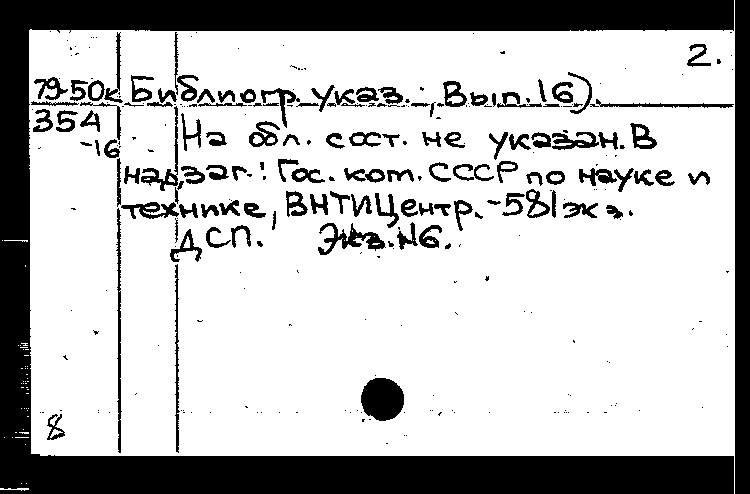 2.
79-50к Библиогр. указ.; Вып. 16).
354 На обл. сост. не указан. В
-16
надзаг.: Гос. ком. СССР по науке и
технике, ВНТИЦентр. -581 экз.
ДСП. Экз. №6.
8